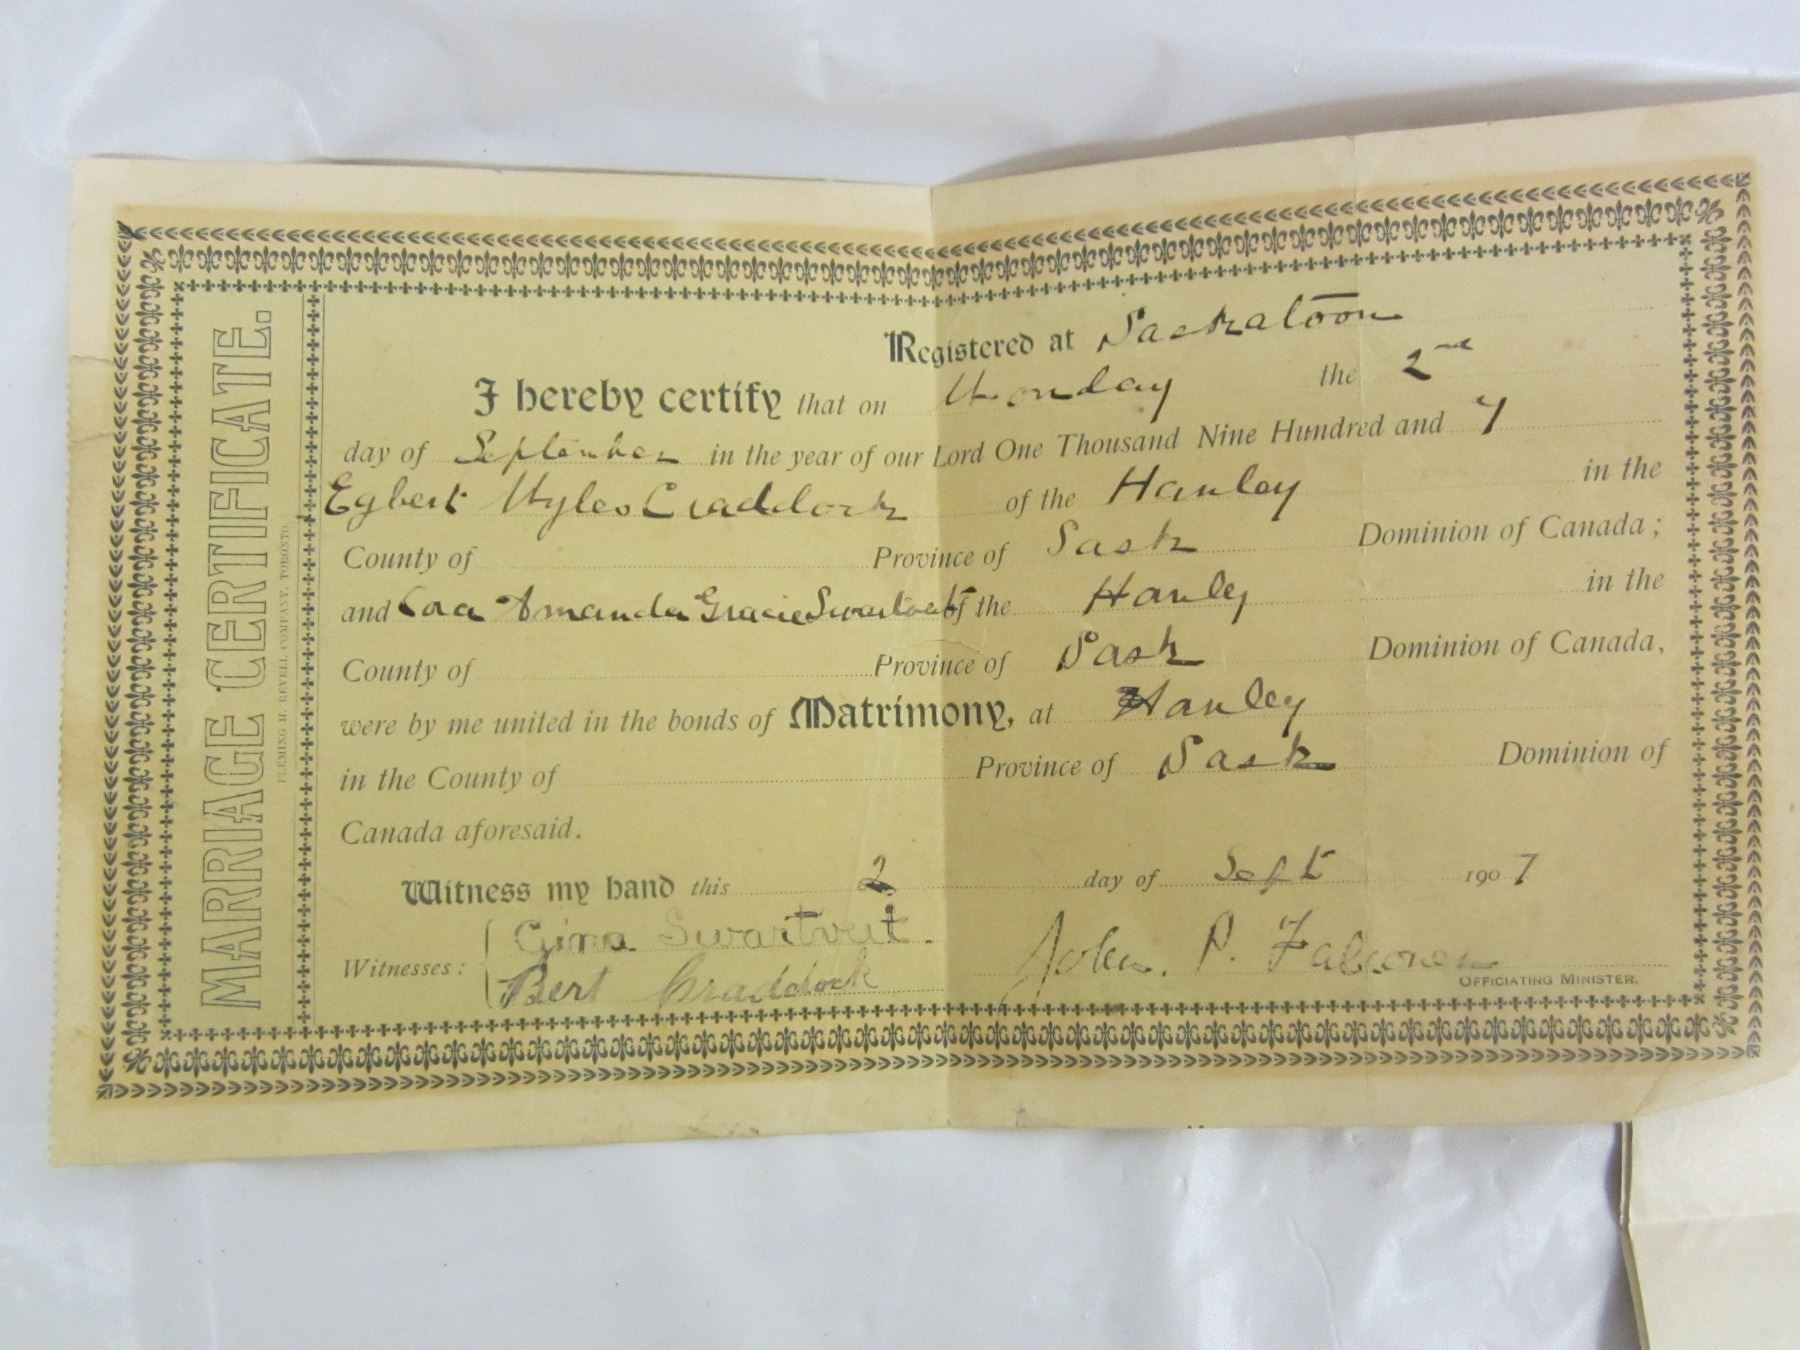 MARRIAGE CERTIFICATE.
FLEMING H. REVELL COMPANY, TORONTO.
Registered at Saskatoon
I hereby certify that on Monday the 2nd
day of September in the year of our Lord One Thousand Nine Hundred and 7
Egbert Myles Craddock of the Hanley in the
County of Province of Sask Dominion of Canada;
and Cora Amanda Gracie of the Hanley in the
County of Province of Sask Dominion of Canada,
were by me united in the bonds of Matrimony, at Hanley
in the County of Province of Sask Dominion of
Canada aforesaid.
Witness my hand this 2 day of Sept 1907
Witnesses: Gina Swartveit.
Bert Craddock
John. P. Falconer
OFFICIATING MINISTER.